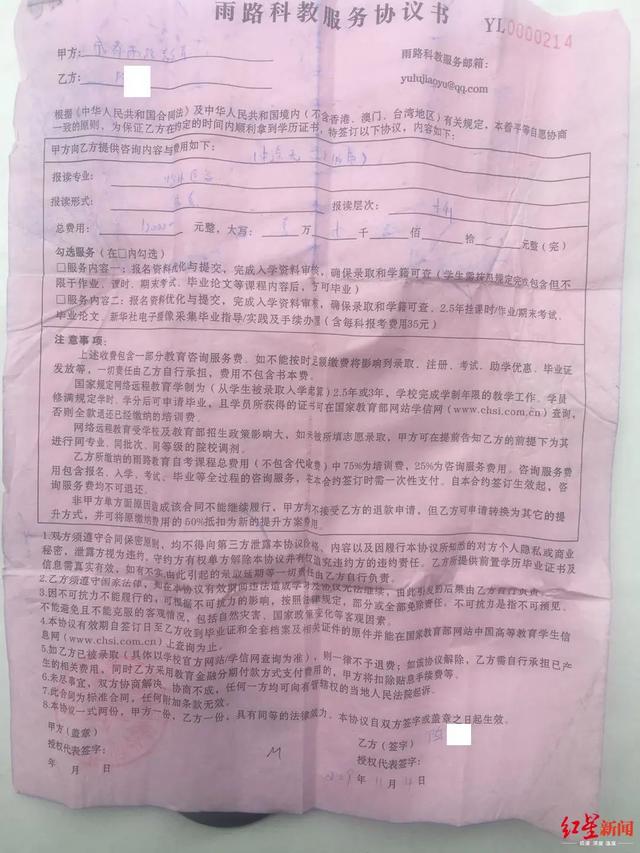 雨路科教服务协议书
YL0000214
甲方：
雨路科教服务邮箱：
乙方：
yulujiaoyu@qq.com
根据《中华人民共和国合同法》及中华人民共和国境内（不含香港、澳门、台湾地区）有关规定，本着平等自愿协商
一致的原则，为保证乙方在约定的时间内顺利拿到学历证书，特签订以下协议，内容如下：
甲方向乙方提供咨询内容与费用如下：
报读专业：
报读形式： 报读层次：
总费用： 元整，大写： 万 千 佰 拾 元整（完）
勾选服务（在□内勾选）
□服务内容一：报名资料优化与提交，完成入学资料审核，确保录取和学籍可查（学生需按规定完成包含但不
限于作业、课时、期末考试、毕业论文等课程内容后，方可毕业）
□服务内容二：报名资料优化与提交，完成入学资料审核，确保录取和学籍可查、2.5年挂课时/作业/期末考试、
毕业论文、新华社电子摄像采集毕业指导/实践及手续办理（含每科报考费用35元）
注意事项：
上述收费包含一部分教育咨询服务费。如不能按时足额缴费将影响到录取、注册、考试、助学优惠、毕业证
发放等，一切责任由乙方自行承担，费用不包含书本费。
国家规定网络远程教育学制为（从学生被录取入学起算）2.5年或3年，学校完成学制年限的教学工作、学员
修满规定学时、学分后可申请毕业，且学员所获得的证书可在国家教育部网站学信网（www.chsi.com.cn）查询，
否则全款退还已经缴纳的培训费。
网络远程教育受学校及教育部招生政策影响大，如未被所填志愿录取，甲方可在提前告知乙方的前提下为其
进行同专业、同批次、同等级的院校调剂。
乙方所缴纳的雨路教育自考课程总费用（不包含代收费）中75%为培训费，25%为咨询服务费用。咨询服务费
用包含报名、入学、考试、毕业等全过程的咨询服务，在本合约签订时需一次性支付。自本合约签订生效起，咨
询服务费均不可退还。
非甲方单方面原因造成该合同不能继续履行，甲方均不接受乙方的退款申请，但乙方可申请转换为其它的提
升方式，并可将原缴纳费用的50%抵扣为新的提升方案费用。
1.双方须遵守合同保密原则，均不得向第三方泄露本协议价格、内容以及因履行本协议所知悉的对方个人隐私或商业
秘密，泄露方视为违约，守约方有权单方解除本协议并有权追究违约方的违约责任。乙方所提供前置学历毕业证书及
信息需真实有效，如有不实，由此引起的录取延期等一切责任由乙方自行负责。
2.乙方须遵守国家法律，如在本协议有效期间违法造成学习及协议无法继续，由此引发的后果由乙方自行负责。
3.因不可抗力不能履行的，可根据不可抗力的影响，按照法律规定，部分或全部免除责任。不可抗力是指不可预见、
不能避免且不能克服的客观情况，包括自然灾害、国家政策变化等客观因素。
4.本协议有效期自签订日至乙方收到毕业证和全套档案及相关证件的原件并能在国家教育部网站中国高等教育学生信
息网（www.chsi.com.cn）上查询为止。
5.如乙方已被录取（具体以学校官方网站/学信网查询为准），则一律不予退费；如该协议解除，乙方需自行承担已产
生的相关费用。同时乙方采用教育金融分期付款方式支付费用的，甲方将扣除贴息手续费等。
6.未尽事宜，双方协商解决，协商不成，任何一方均可向有管辖权的当地人民法院起诉。
7.此合同为标准合同，任何附加条款无效。
8.本协议一式两份，甲方一份，乙方一份，具有同等的法律效力。本协议自双方签字或盖章之日起生效。
甲方（盖章） 乙方（签字）
授权代表签字： 授权代表签字：
年 月 日 年 11 月 日
红星新闻